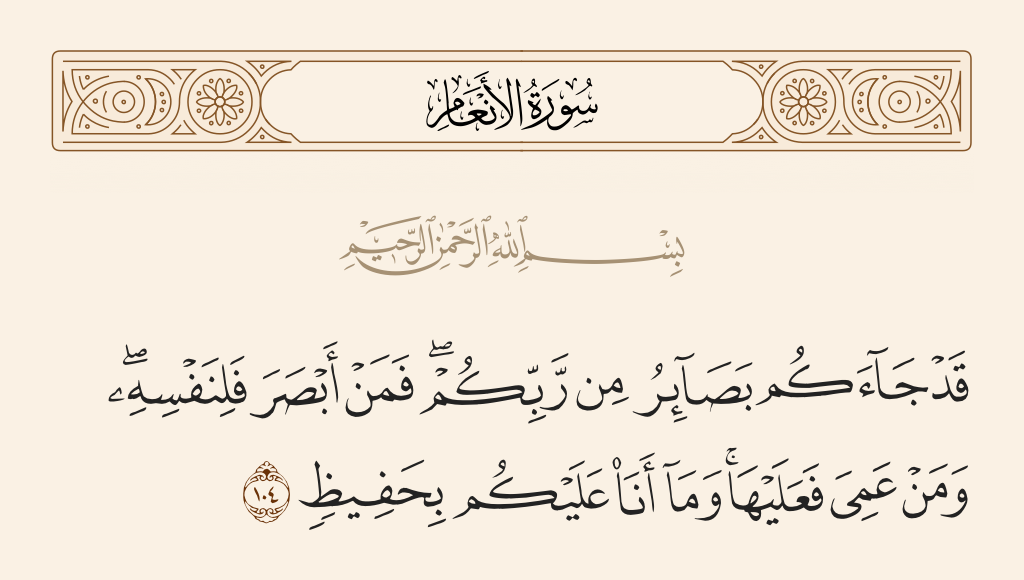 سُورَةُ الأَنْعَامِ
بِسْمِ ٱللَّهِ ٱلرَّحْمَٰنِ ٱلرَّحِيمِ
قَدْ جَآءَكُم بَصَآئِرُ مِن رَّبِّكُمْ ۖ فَمَنْ أَبْصَرَ فَلِنَفْسِهِۦ ۖ
وَمَنْ عَمِىَ فَعَلَيْهَا ۚ وَمَآ أَنَا۠ عَلَيْكُم بِحَفِيظٍ ١٠٤